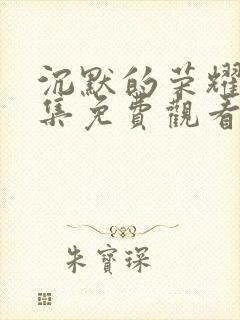 沉默的荣耀
集免費觀看
朱寶琛